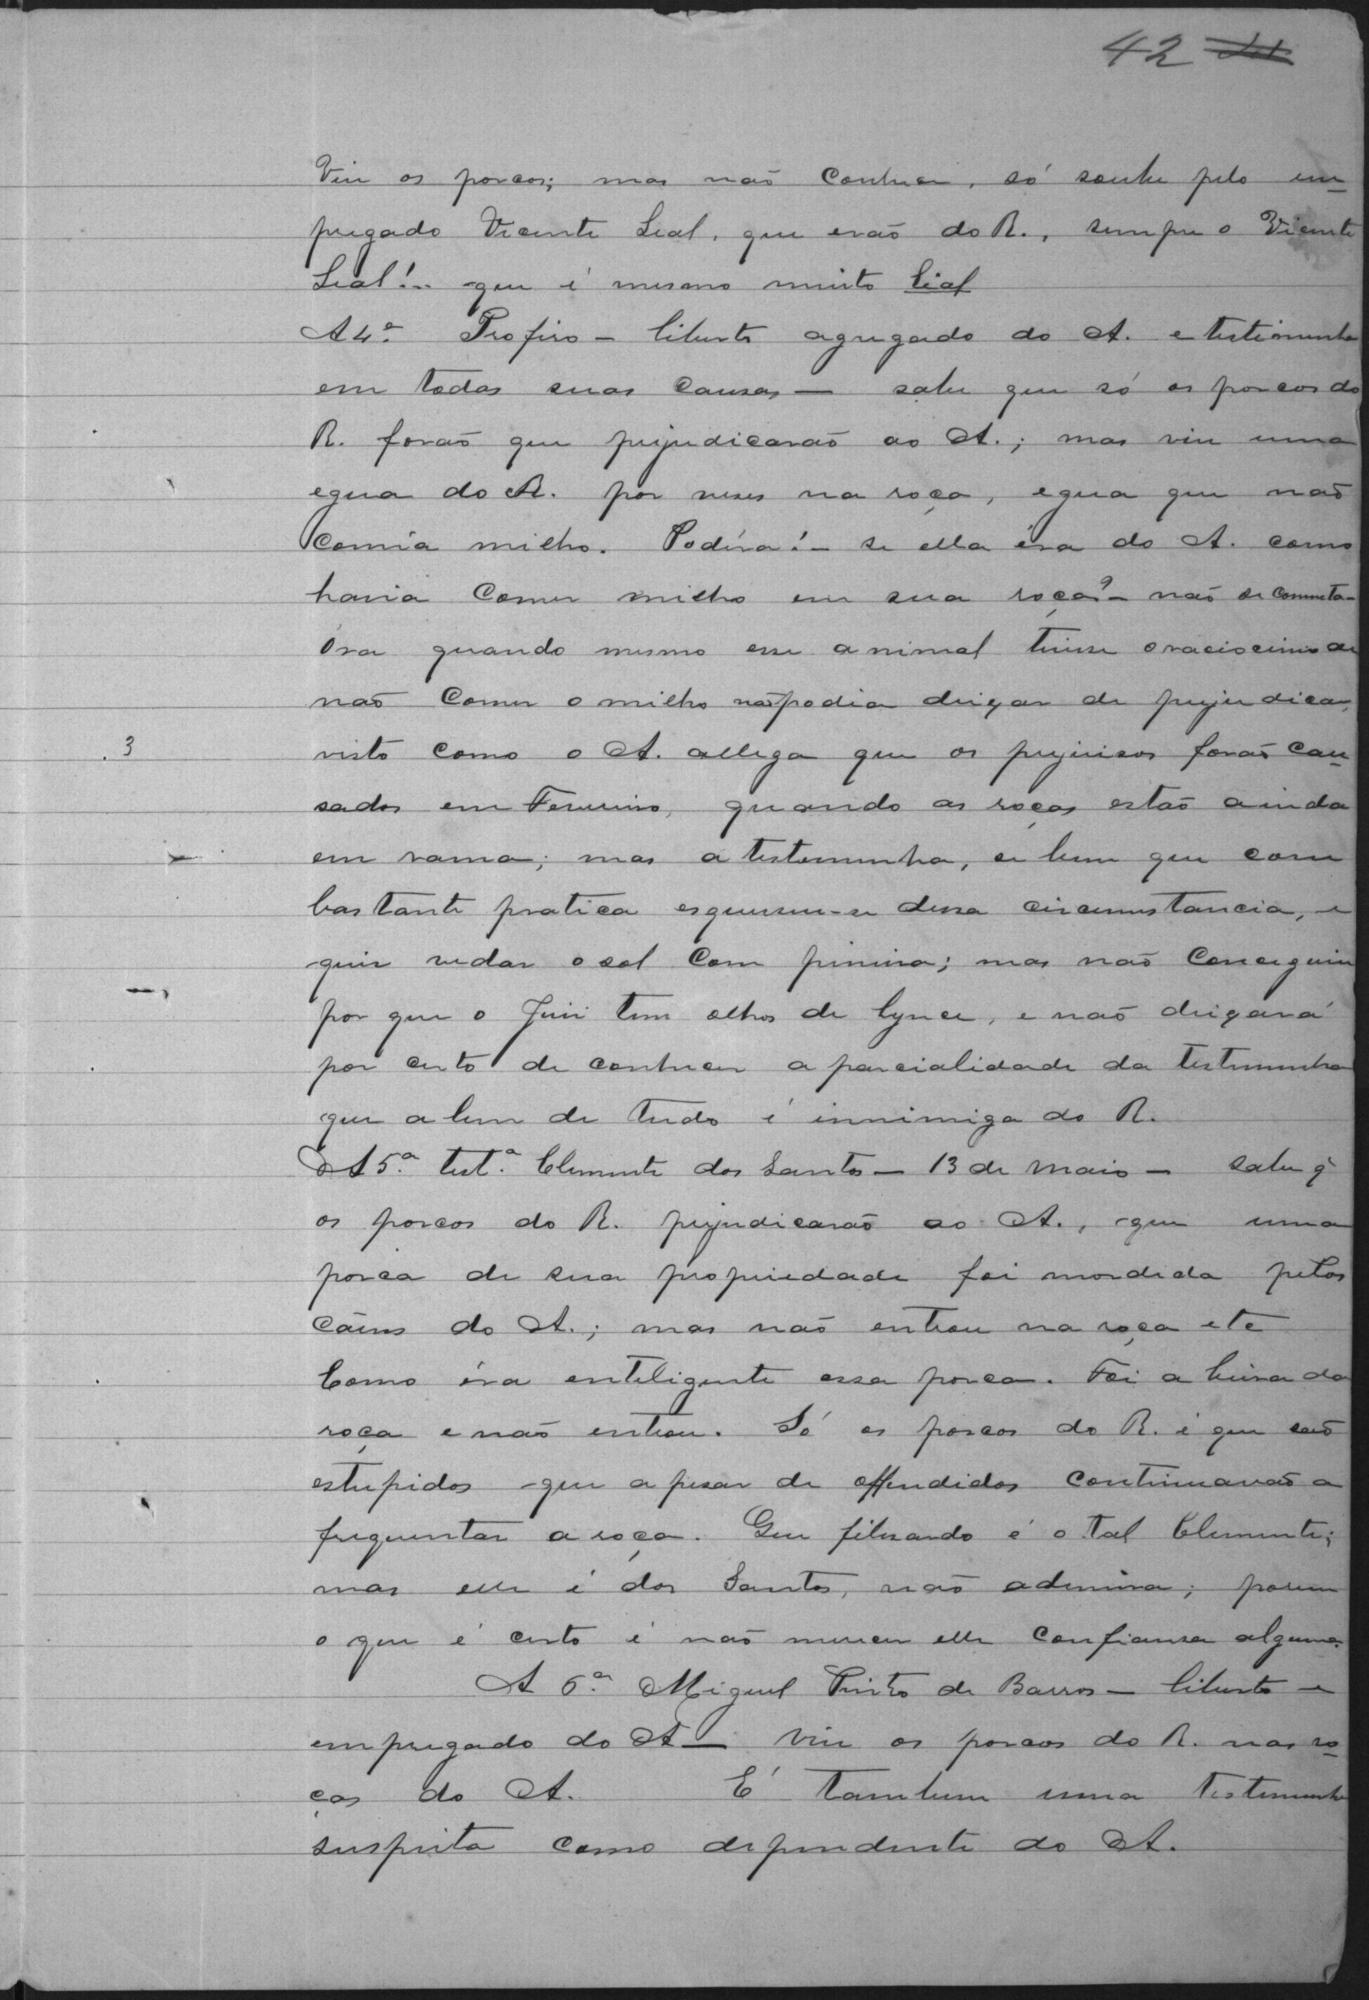 42
Viu os porcos; mas não conhece, só soube pelo em-
pregado Vicente Leal, que erão do R., sempre o Vicente
Leal!.. que é mesmo muito leal
A 4ª Profiro - liberto agregado do A. e testimunha
em todas suas causas - sabe que só os porcos do
R. forão que prejudicarão ao A.; mas viu uma
egua do A. por veses na roça, egua que não
comia milho. Podéra! - se ella éra do A. como
havia comer milho em sua roça? - não se commeta -
Óra quando mesmo esse animal tivesse o raciocinio de
não comer o milho não podia deixar de prejudicar,
visto como o A. allega que os prejuisos forão cau-
sados em Fevereiro, quando as roças estão ainda
em rama; mas a testemunha, se bem que com
bastante pratica esqueceu-se dessa circumstancia, e
quiz vedar o sol com pineira; mas não conceguiu
por que o Juiz tem olhos de lynce, e não deixará
por certo de conhecer a parcialidade da testemunha
que alem de tudo é innimiga do R.
A 5ª test.ª Clemente dos Santos - 13 de Maio - sabe q̃
os porcos do R. prejudicarão ao A., que uma
porca de sua propriedade foi mordida pelos
cães do A.; mas não entrou na roça etc
Como éra enteligente essa porca. Foi a beira da
roça e não entrou. Só os porcos do R. é que são
estupidos que apesar de offendidos continuavão a
frequentar a roça. Que filisardo é o tal Clemente;
mas elle é dos Santos, não admira; porem
o que é certo é não merecer elle confiansa alguma.
A 6ª Miguel Pinto de Barros - liberto e
empregado do A - viu os porcos do R. nas ro-
ças do A. É tambem uma testemunha
suspeita como dependente do A.
3